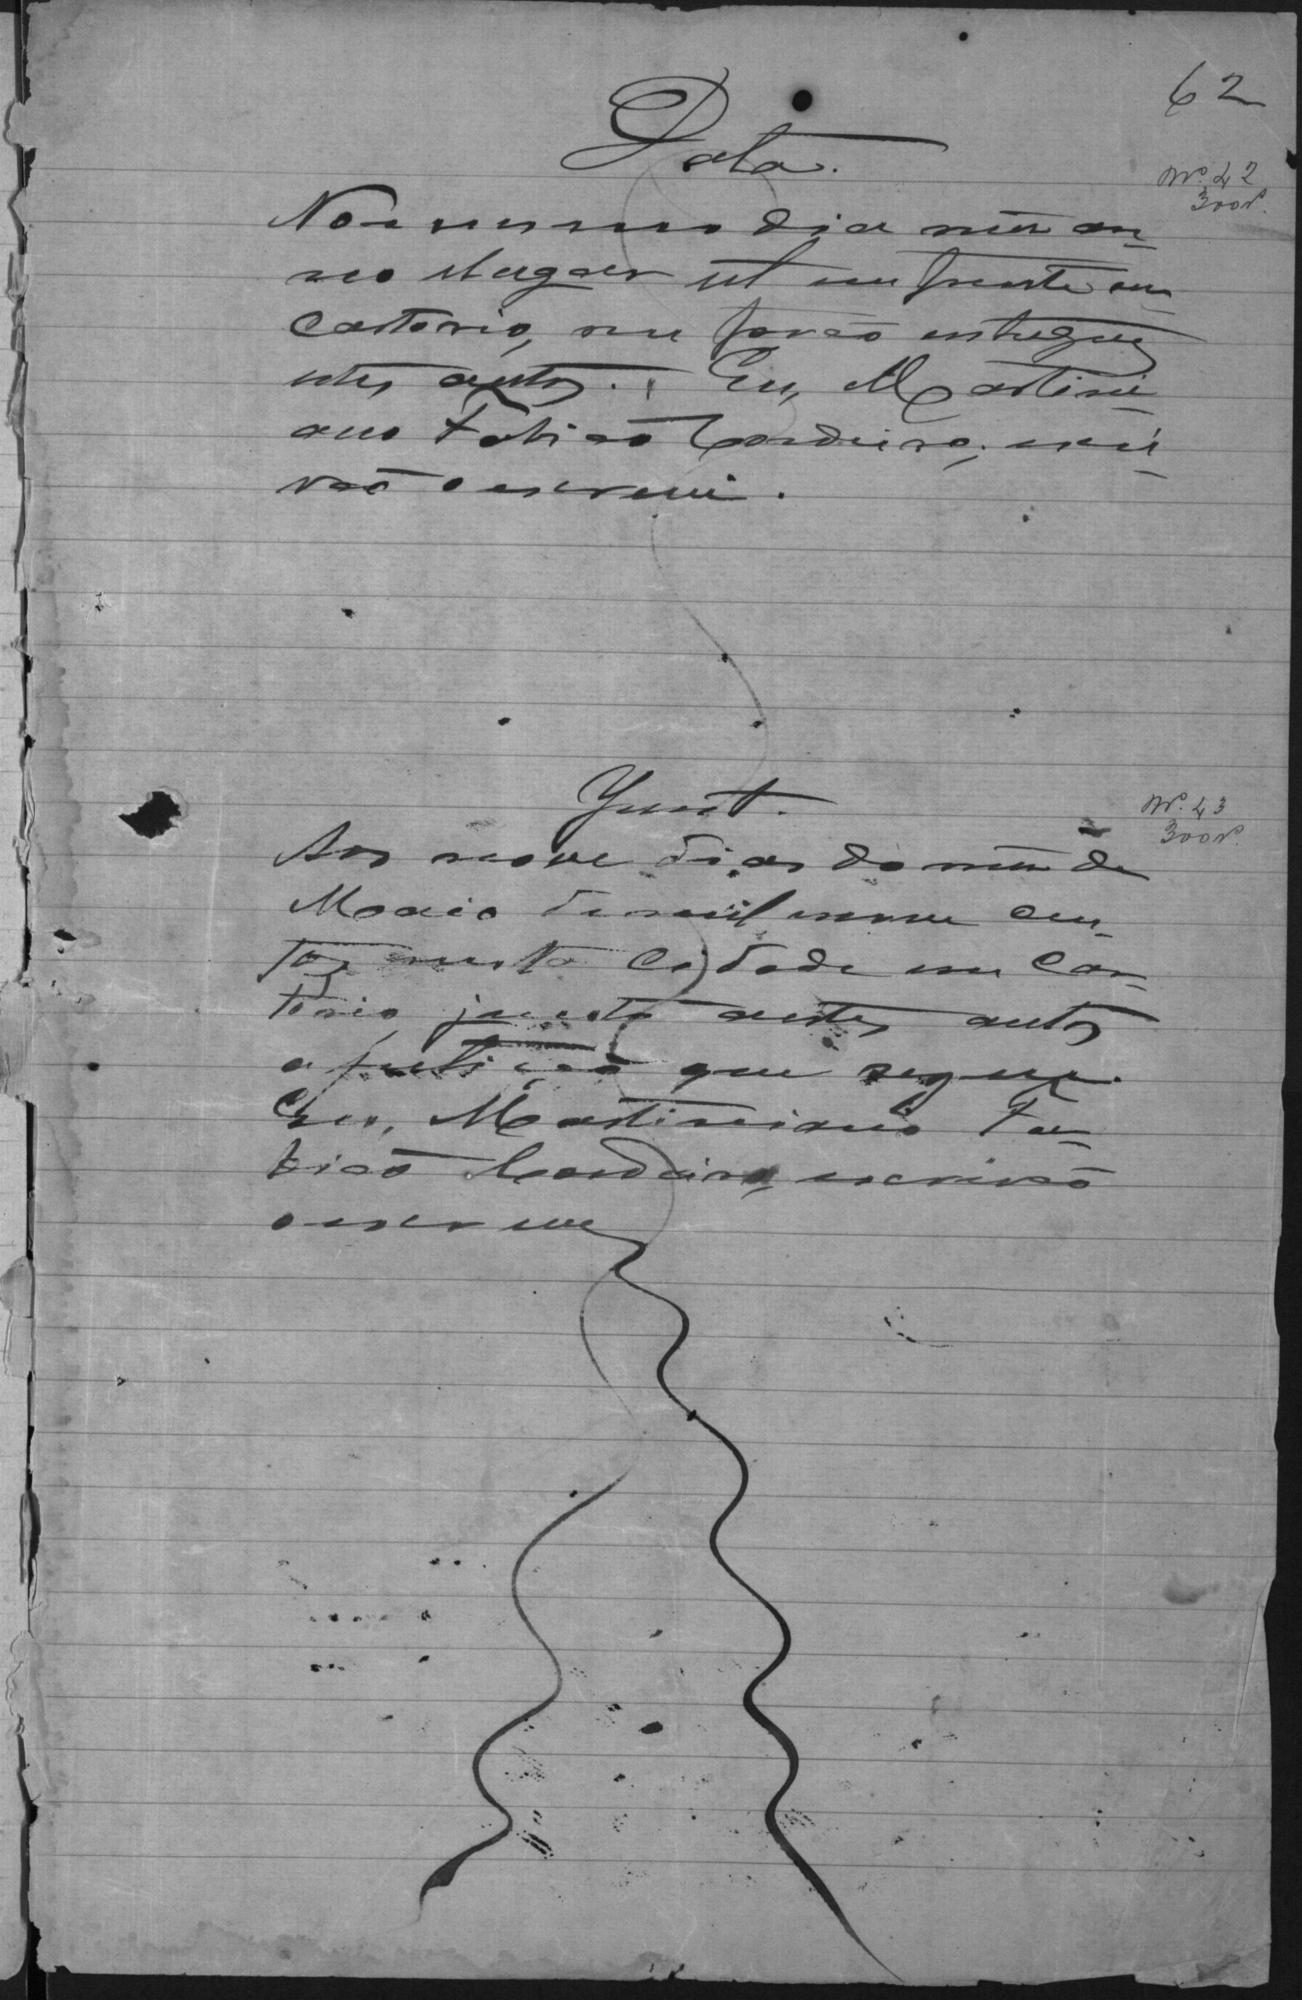 62
Data.
Nº 42
300rs.
No mesmo dia mez an-
no e lugar ut em frente em
cartorio, me forão entregues
estes autos. Eu, Martini-
ano Fabião Cordeiro, escri-
vão o escrevi.
Junt.
Nº 43
300rs.
Aos nove dias do mez de
Maio de mil nove cen-
tos nesta Cidade em Car-
torio, junto a estes autos
a petição que segue.
Eu, Martiniano Fa-
bião Cordeiro, escrivão
o escrevi